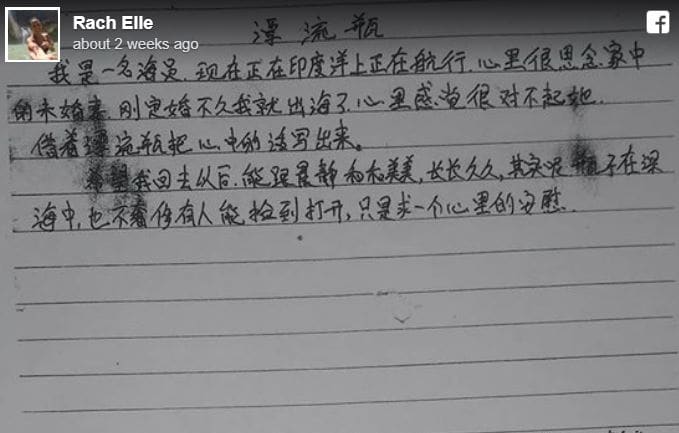 Rach Elle
about 2 weeks ago
漂流瓶
我是一名海员，现在正在印度洋上正在航行，心里很思念家中
的未婚妻，刚定婚不久我就出海了，心里感觉很对不起她，
借着漂流瓶把心中的话写出来。
希望我回去以后，能跟 静和和美美，长长久久，其实 瓶子在深
海中，也不 有人能捡到打开，只是求一个心里的安慰。